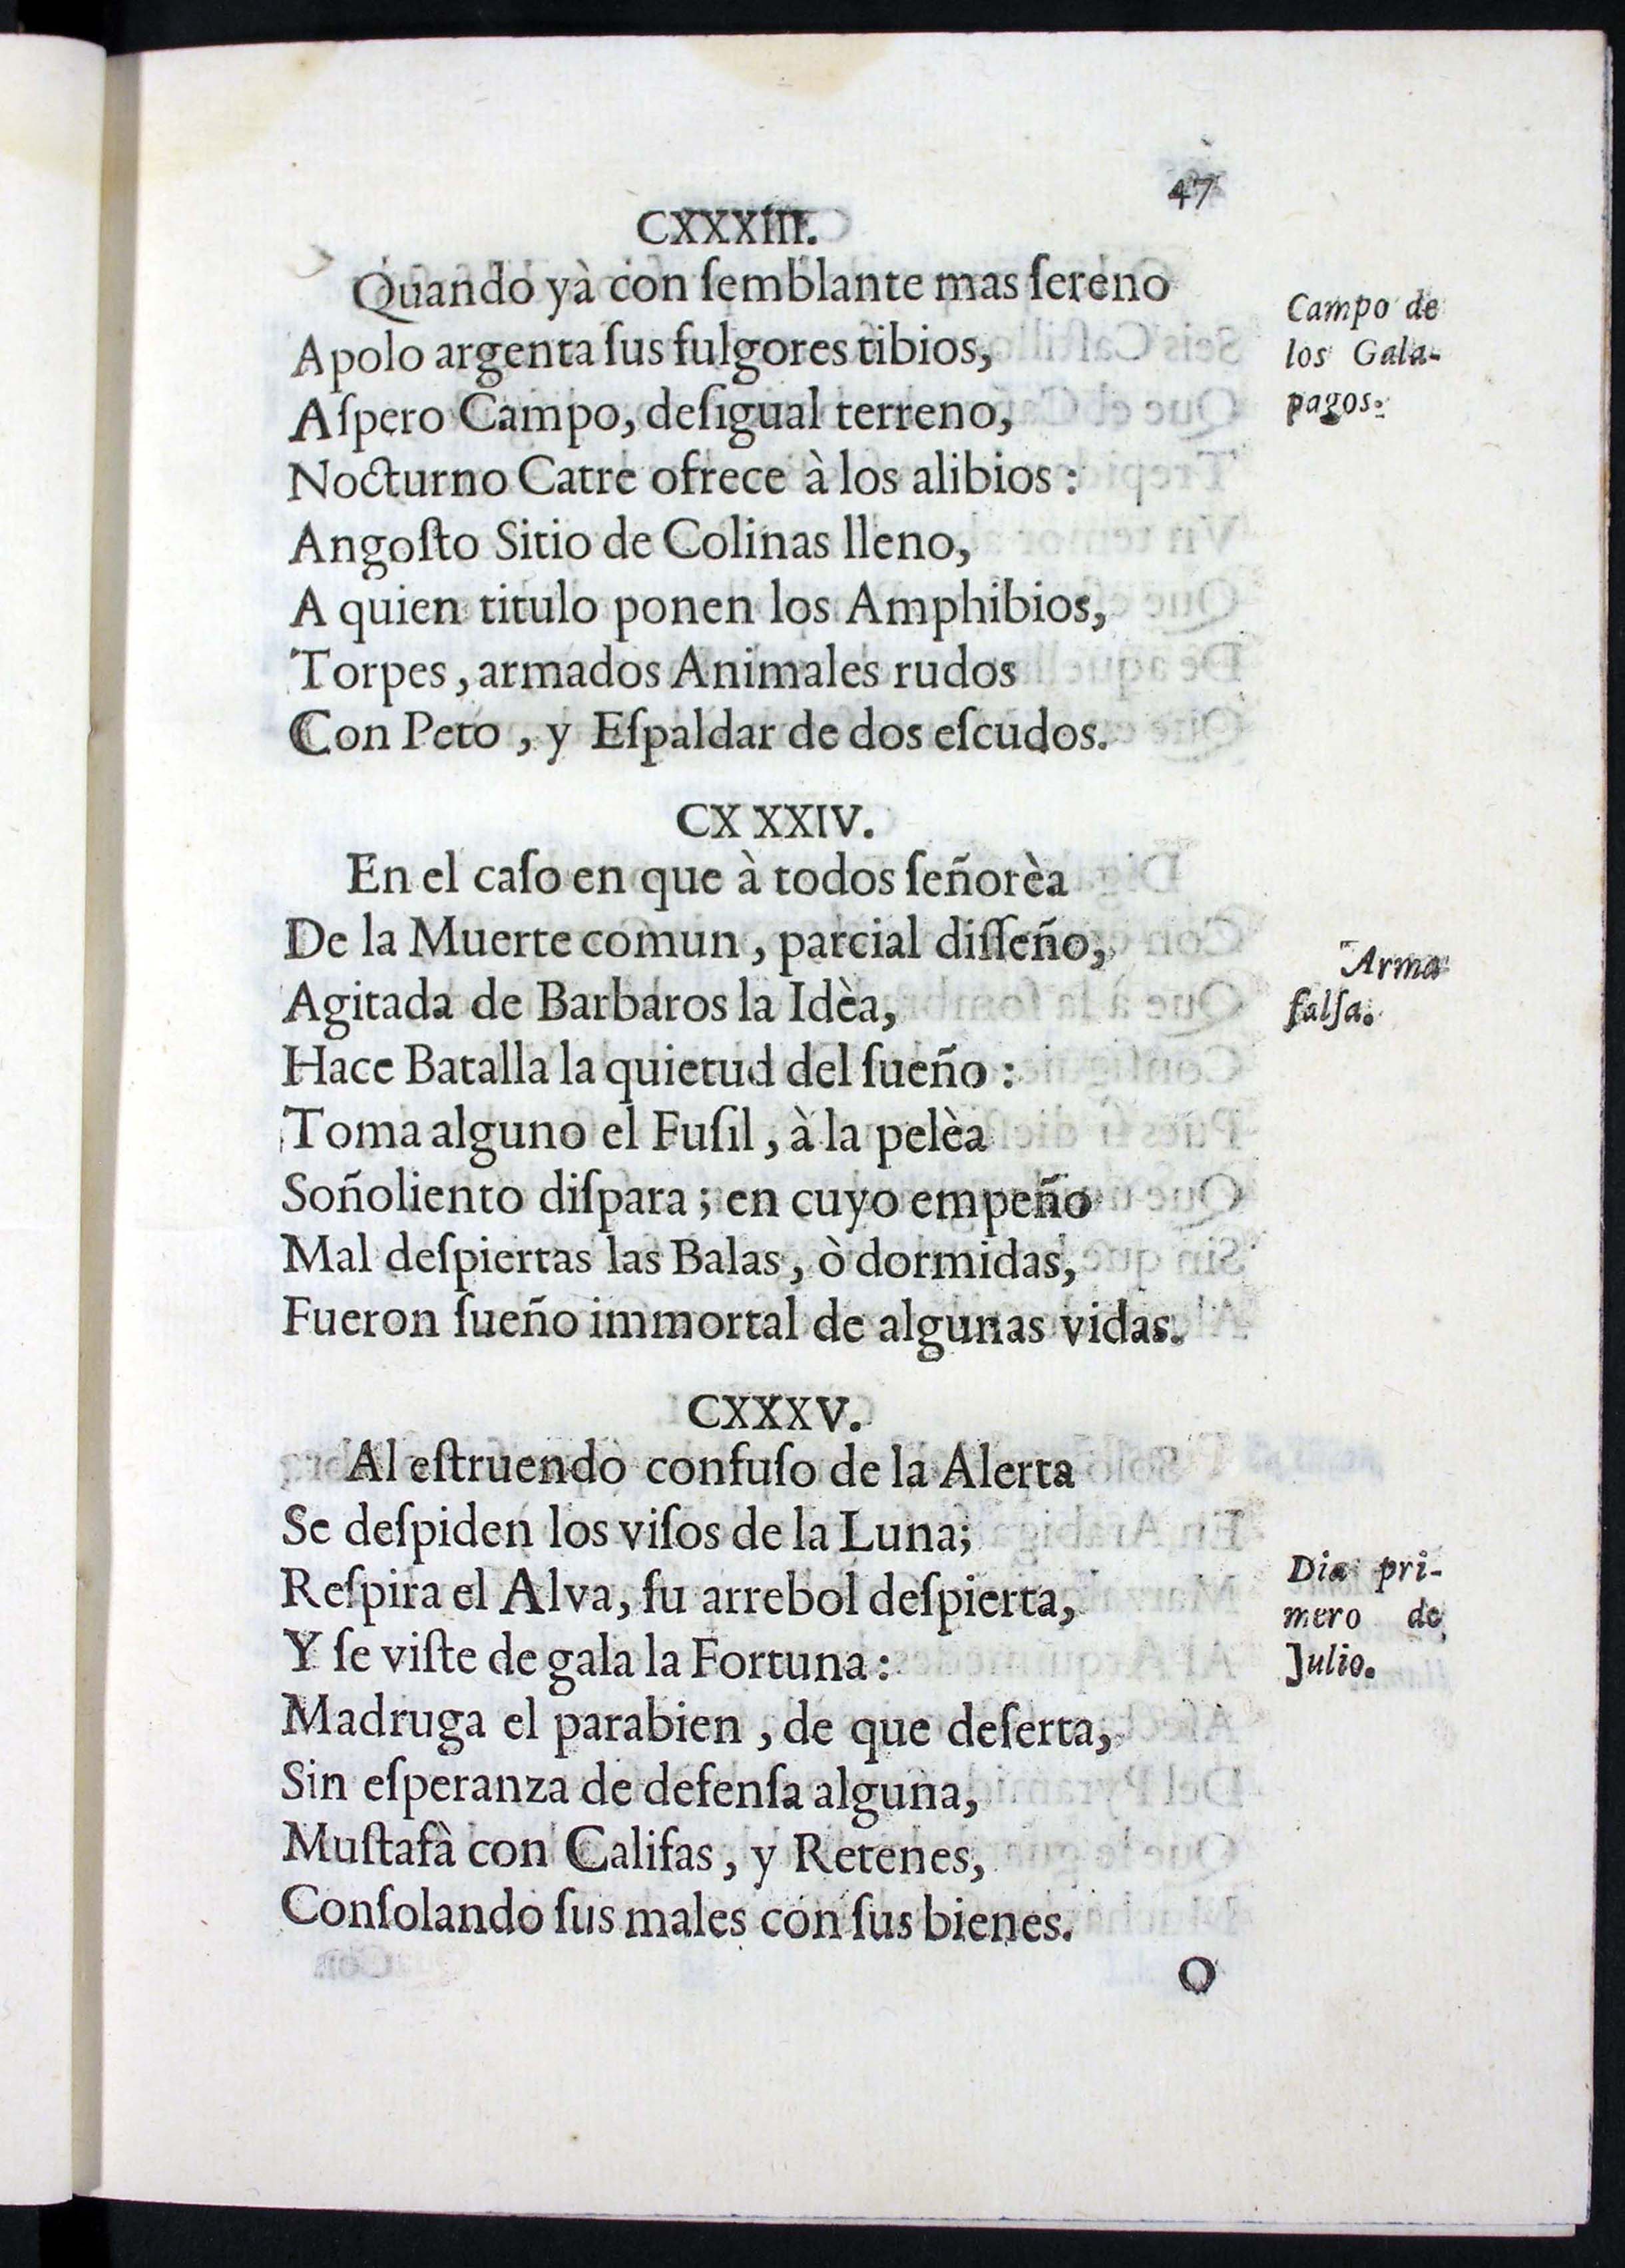 47
CXXXIII.
Quando yà con ſemblante mas ſereno
Apolo argenta ſus fulgores tibios,
Aſpero Campo, deſigual terreno,
Nocturno Catre ofrece à los alibios :
Angoſto Sitio de Colinas lleno,
A quien titulo ponen los Amphibios,
Torpes, armados Animales rudos
Con Peto, y Eſpaldar de dos eſcudos.
Campo de
los Gala-
pagos.
CXXXIV.
En el caſo en que à todos ſeñorèa
De la Muerte comun, parcial diſſeño,
Agitada de Barbaros la Idèa,
Hace Batalla la quietud del ſueño :
Toma alguno el Fuſil, à la pelèa
Soñoliento diſpara; en cuyo empeño
Mal deſpiertas las Balas, ò dormidas,
Fueron ſueño immortal de algunas vidas.
Arma
falſa.
CXXXV.
Al eſtruendo confuſo de la Alerta
Se deſpiden los viſos de la Luna;
Reſpira el Alva, ſu arrebol deſpierta,
Y ſe viſte de gala la Fortuna :
Madruga el parabien, de que deſerta,
Sin eſperanza de defenſa alguna,
Muſtafà con Califas, y Retenes,
Conſolando ſus males con ſus bienes.
Dia pri-
mero de
Julio.
O